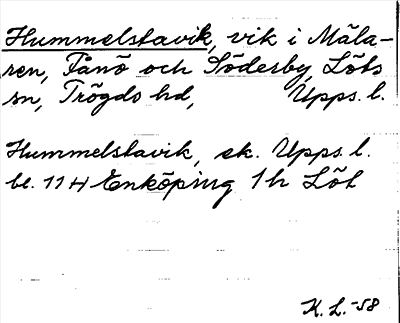 Hummelstavik, vik i Mäla-
ren, Fånö och Söderby, Löts
sn, Trögds hd, Upps. l.
Hummelstavik, ek. Upps. l.
bl. 11 H Enköping 1h Löt
K. L. -58